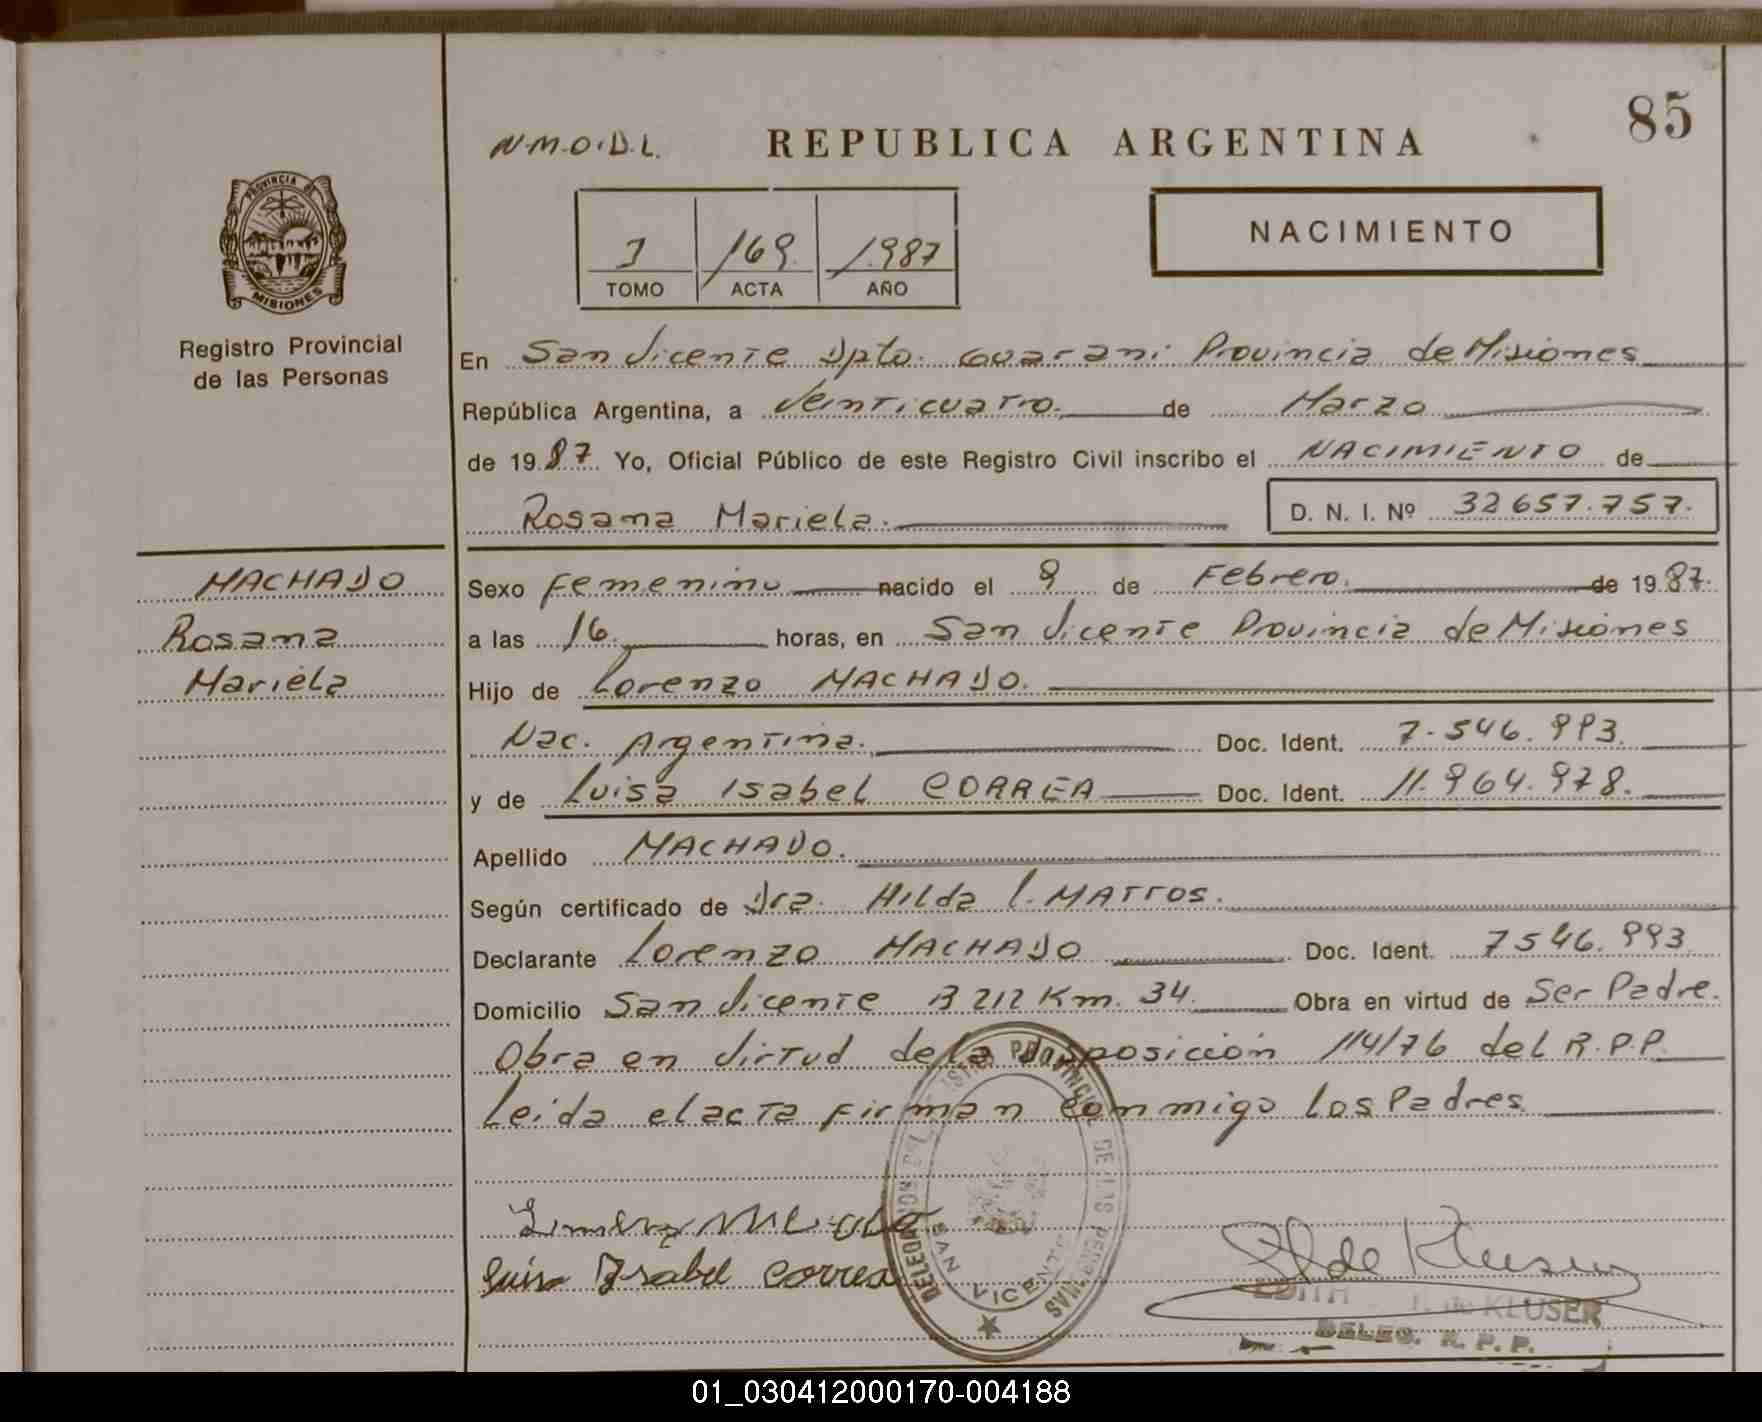 85
N.M.O.D.L.
REPUBLICA ARGENTINA
PROVINCIA DE
MISIONES
Registro Provincial
de las Personas
I 169. 1.987
TOMO ACTA AÑO
NACIMIENTO
En San Vicente Dpto. Guarani Provincia de Misiones
República Argentina, a Veinticuatro. de Marzo
de 1987 Yo, Oficial Público de este Registro Civil inscribo el NACIMIENTO de
Rosana Mariela. D. N. I. Nº 32657.757.
MACHADO
Rosana
Mariela
Sexo Femenino nacido el 9 de Febrero. de 1987.
a las 16. horas, en San Vicente Provincia de Misiones
Hijo de Lorenzo MACHADO.
Nac. Argentina. Doc. Ident. 7.546.993.
y de Luisa Isabel CORREA Doc. Ident. 11.964.978.
Apellido MACHADO.
Según certificado de Dra. Hilda L. MATTOS.
Declarante Lorenzo MACHADO Doc. Ident. 7546.993
Domicilio San Vicente R 212 Km. 34. Obra en virtud de Ser Padre.
Obra en virtud de la disposición 114/76 del R.P.P.
Leida el acta firman conmigo los Padres
Luisa Isabel Correa
DELEGACION DEL REGISTRO PROVINCIAL DE LAS PERSONAS
SAN VICENTE
E H de Kluser
EDITH H. de KLUSER
DELEG. R. P. P.
01_030412000170-004188